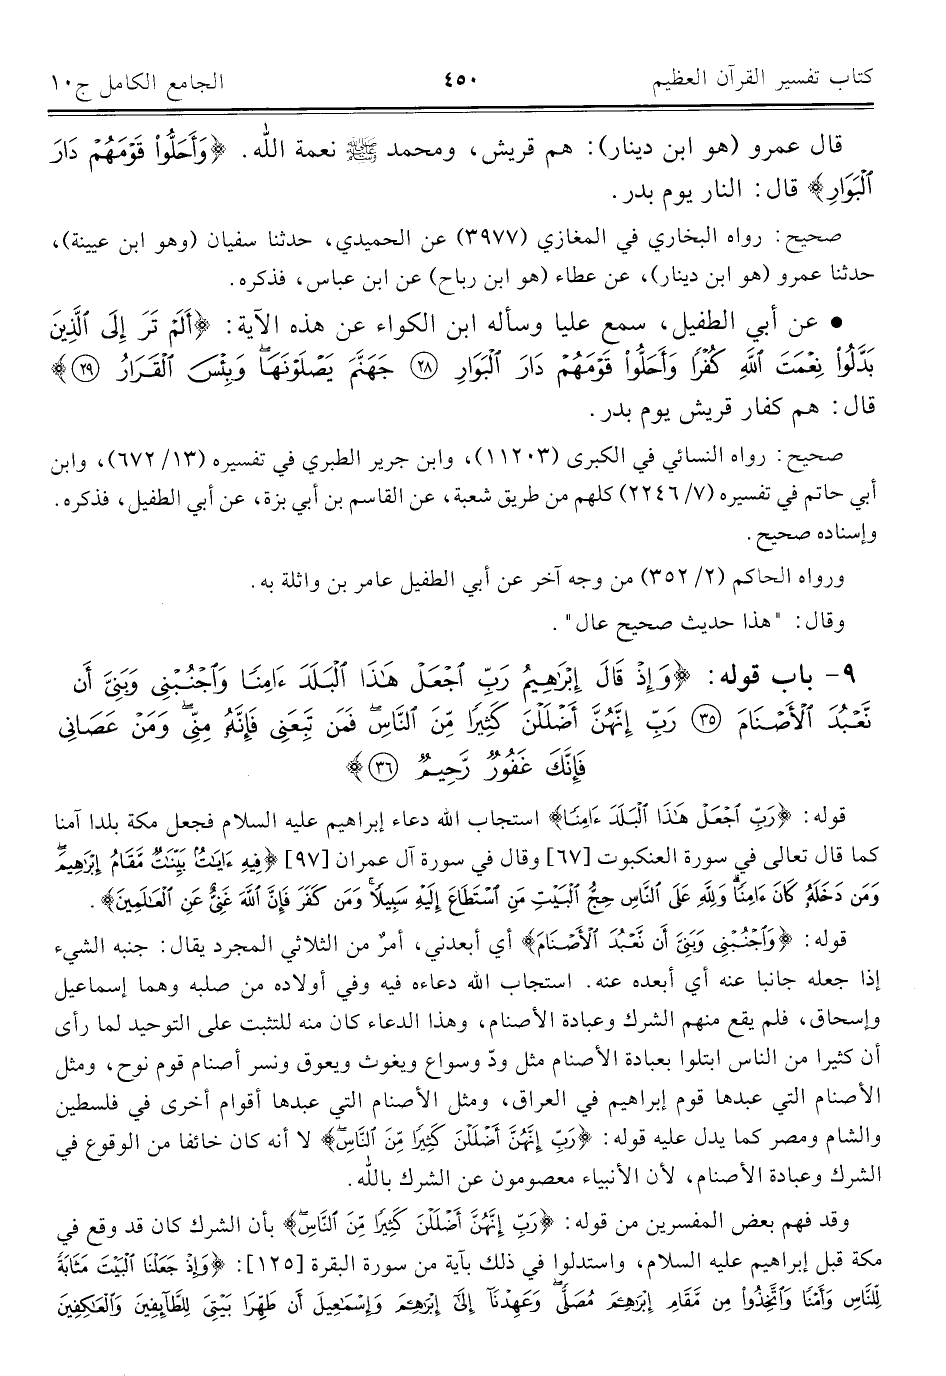 كتاب تفسير القرآن العظيم ٤٥٠ الجامع الكامل ج١٠
قال عمرو (هو ابن دينار): هم قريش، ومحمد ﷺ نعمة الله. ﴿وَأَحَلُّوا۟ قَوْمَهُمْ دَارَ
ٱلْبَوَارِ﴾ قال: النار يوم بدر.
صحيح: رواه البخاري في المغازي (٣٩٧٧) عن الحميدي، حدثنا سفيان (وهو ابن عيينة)،
حدثنا عمرو (هو ابن دينار)، عن عطاء (هو ابن رباح) عن ابن عباس، فذكره.
• عن أبي الطفيل، سمع عليا وسأله ابن الكواء عن هذه الآية: ﴿أَلَمْ تَرَ إِلَى ٱلَّذِينَ
بَدَّلُوا۟ نِعْمَتَ ٱللَّهِ كُفْرًا وَأَحَلُّوا۟ قَوْمَهُمْ دَارَ ٱلْبَوَارِ ٢٨ جَهَنَّمَ يَصْلَوْنَهَا ۖ وَبِئْسَ ٱلْقَرَارُ ٢٩﴾
قال: هم كفار قريش يوم بدر.
صحيح: رواه النسائي في الكبرى (١١٢٠٣)، وابن جرير الطبري في تفسيره (١٣/ ٦٧٢)، وابن
أبي حاتم في تفسيره (٧/ ٢٢٤٦) كلهم من طريق شعبة، عن القاسم بن أبي بزة، عن أبي الطفيل، فذكره.
وإسناده صحيح.
ورواه الحاكم (٢/ ٣٥٢) من وجه آخر عن أبي الطفيل عامر بن واثلة به.
وقال: "هذا حديث صحيح عال".
٩- باب قوله: ﴿وَإِذْ قَالَ إِبْرَٰهِيمُ رَبِّ ٱجْعَلْ هَـٰذَا ٱلْبَلَدَ ءَامِنًا وَٱجْنُبْنِى وَبَنِىَّ أَن
نَّعْبُدَ ٱلْأَصْنَامَ ٣٥ رَبِّ إِنَّهُنَّ أَضْلَلْنَ كَثِيرًا مِّنَ ٱلنَّاسِ ۖ فَمَن تَبِعَنِى فَإِنَّهُۥ مِنِّى ۖ وَمَنْ عَصَانِى
فَإِنَّكَ غَفُورٌ رَّحِيمٌ ٣٦﴾
قوله: ﴿رَبِّ ٱجْعَلْ هَـٰذَا ٱلْبَلَدَ ءَامِنًا﴾ استجاب الله دعاء إبراهيم عليه السلام فجعل مكة بلدا آمنا
كما قال تعالى في سورة العنكبوت [٦٧] وقال في سورة آل عمران [٩٧] ﴿فِيهِ ءَايَـٰتٌۢ بَيِّنَـٰتٌ مَّقَامُ إِبْرَٰهِيمَ ۖ
وَمَن دَخَلَهُۥ كَانَ ءَامِنًا ۗ وَلِلَّهِ عَلَى ٱلنَّاسِ حِجُّ ٱلْبَيْتِ مَنِ ٱسْتَطَاعَ إِلَيْهِ سَبِيلًا ۚ وَمَن كَفَرَ فَإِنَّ ٱللَّهَ غَنِىٌّ عَنِ ٱلْعَـٰلَمِينَ﴾.
قوله: ﴿وَٱجْنُبْنِى وَبَنِىَّ أَن نَّعْبُدَ ٱلْأَصْنَامَ﴾ أي أبعدني، أمرٌ من الثلاثي المجرد يقال: جنبه الشيء
إذا جعله جانبا عنه أي أبعده عنه. استجاب الله دعاءه فيه وفي أولاده من صلبه وهما إسماعيل
وإسحاق، فلم يقع منهم الشرك وعبادة الأصنام، وهذا الدعاء كان منه للتثبت على التوحيد لما رأى
أن كثيرا من الناس ابتلوا بعبادة الأصنام مثل ودّ وسواع ويغوث ويعوق ونسر أصنام قوم نوح، ومثل
الأصنام التي عبدها قوم إبراهيم في العراق، ومثل الأصنام التي عبدها أقوام أخرى في فلسطين
والشام ومصر كما يدل عليه قوله: ﴿رَبِّ إِنَّهُنَّ أَضْلَلْنَ كَثِيرًا مِّنَ ٱلنَّاسِ ۖ﴾ لا أنه كان خائفا من الوقوع في
الشرك وعبادة الأصنام، لأن الأنبياء معصومون عن الشرك بالله.
وقد فهم بعض المفسرين من قوله: ﴿رَبِّ إِنَّهُنَّ أَضْلَلْنَ كَثِيرًا مِّنَ ٱلنَّاسِ ۖ﴾ بأن الشرك كان قد وقع في
مكة قبل إبراهيم عليه السلام، واستدلوا في ذلك بآية من سورة البقرة [١٢٥]: ﴿وَإِذْ جَعَلْنَا ٱلْبَيْتَ مَثَابَةً
لِّلنَّاسِ وَأَمْنًا وَٱتَّخِذُوا۟ مِن مَّقَامِ إِبْرَٰهِـۧمَ مُصَلًّى ۖ وَعَهِدْنَآ إِلَىٰٓ إِبْرَٰهِـۧمَ وَإِسْمَـٰعِيلَ أَن طَهِّرَا بَيْتِىَ لِلطَّآئِفِينَ وَٱلْعَـٰكِفِينَ